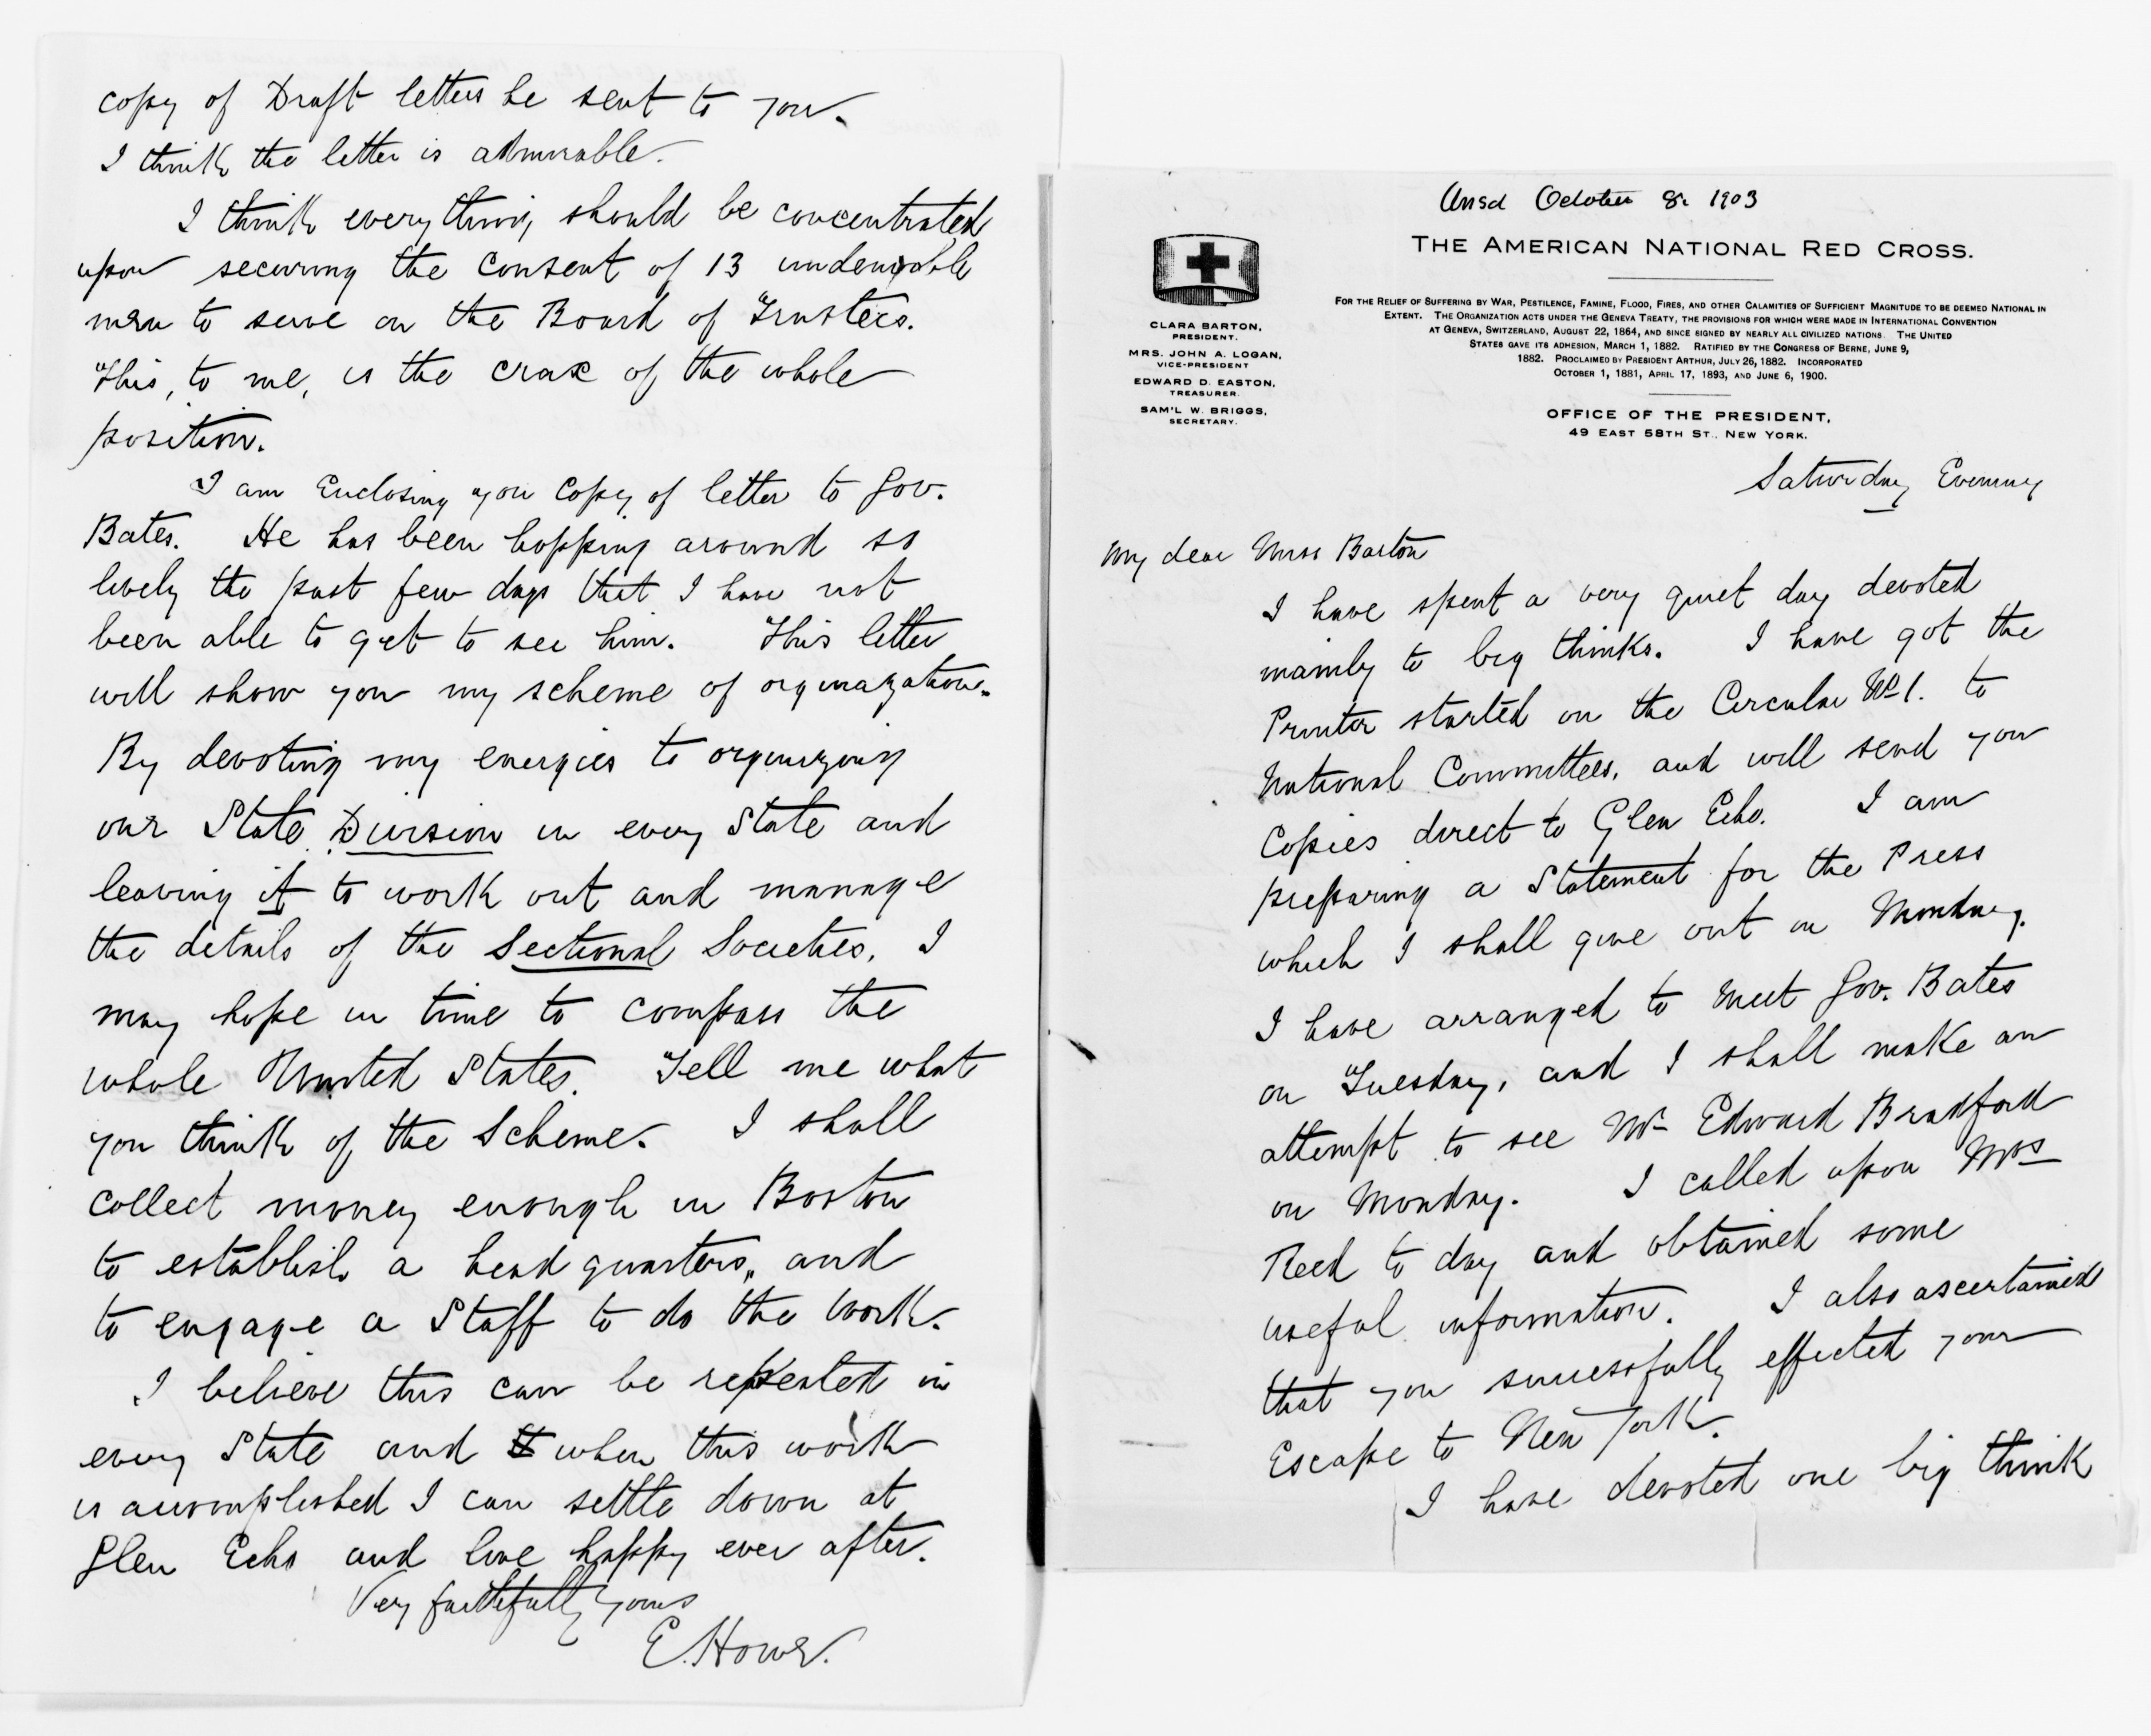 copy of Draft letters he sent to you.
I think the letter is admirable.
I think everything should be concentrated
upon securing the consent of 13 undeniable
men to serve on the Board of Trustees.
This, to me, is the crax of the whole
position.
I am Enclosing you Copy of letter to Gov.
Bates. He has been hopping around so
lively the past few days that I have not
been able to get to see him. This letter
will show you my scheme of organazation.
By devoting my energies to organizing
our State Division in every State and
leaving it to work out and manage
the details of the Sectional Societies, I
may hope in time to compass the
whole United States. Tell me what
you think of the Scheme. I shall
collect money enough in Boston
to establish a head quarters, and
to engage a Staff to do the work.
I believe this can be repeated in
every State and when this work
is accomplished I can settle down at
Glen Echo and live happy ever after.
Very faithfully yours
E. Howe.
Ansd October 8. 1903
THE AMERICAN NATIONAL RED CROSS.
FOR THE RELIEF OF SUFFERING BY WAR, PESTILENCE, FAMINE, FLOOD, FIRES, AND OTHER CALAMITIES OF SUFFICIENT MAGNITUDE TO BE DEEMED NATIONAL IN
EXTENT. THE ORGANIZATION ACTS UNDER THE GENEVA TREATY, THE PROVISIONS FOR WHICH WERE MADE IN INTERNATIONAL CONVENTION
AT GENEVA, SWITZERLAND, AUGUST 22, 1864, AND SINCE SIGNED BY NEARLY ALL CIVILIZED NATIONS. THE UNITED
STATES GAVE ITS ADHESION, MARCH 1, 1882. RATIFIED BY THE CONGRESS OF BERNE, JUNE 9,
1882. PROCLAIMED BY PRESIDENT ARTHUR, JULY 26, 1882. INCORPORATED
OCTOBER 1, 1881, APRIL 17, 1893, AND JUNE 6, 1900.
CLARA BARTON,
PRESIDENT.
MRS. JOHN A. LOGAN,
VICE-PRESIDENT
EDWARD D. EASTON,
TREASURER.
SAM'L W. BRIGGS,
SECRETARY.
OFFICE OF THE PRESIDENT,
49 EAST 58TH ST., NEW YORK.
Saturday Evening
My dear Miss Barton
I have spent a very quiet day devoted
mainly to big thinks. I have got the
Printer started on the Circular No 1. to
National Committees, and will send you
Copies direct to Glen Echo. I am
preparing a Statement for the Press
which I shall give out on Monday.
I have arranged to meet Gov. Bates
on Tuesday, and I shall make an
attempt to see Mr Edward Bradford
on Monday. I called upon Mrs
Reed to day and obtained some
useful information. I also ascertained
that you successfully effected your
Escape to New York.
I have devoted one big think